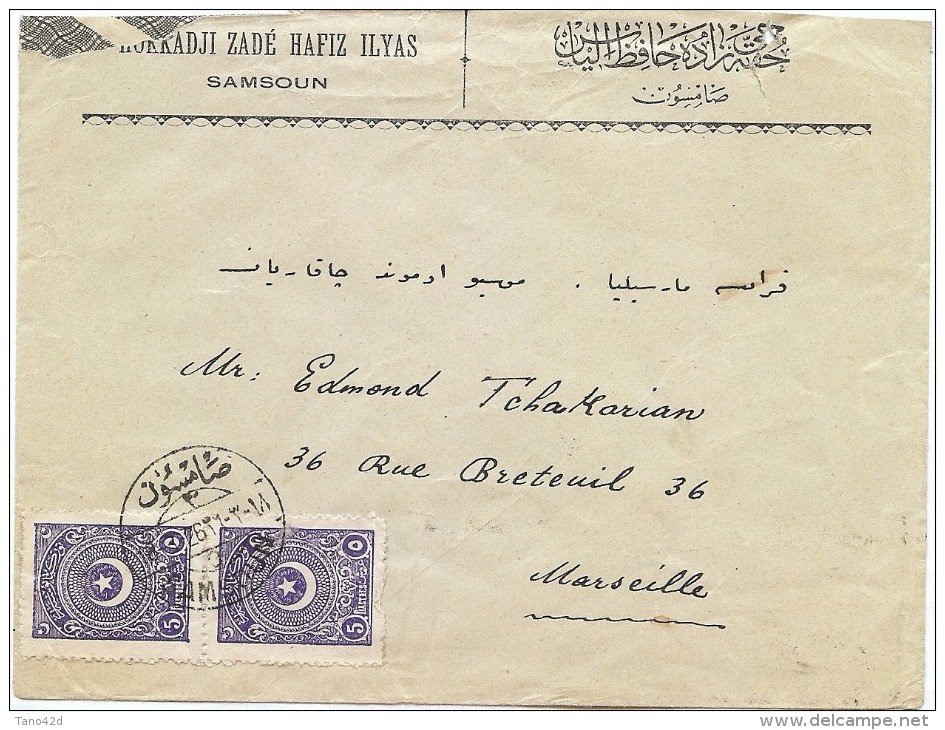 HOKKADJI ZADÉ HAFIZ ILYAS
SAMSOUN
حقه‌جی زاده حافظ الیاس
صامسون
فرانسه مارسيليا . موسيو ادموند چاقاريان
Mr: Edmond Tchakarian
36 Rue Breteuil 36
Marseille
صامسون
٣
٢٦-٣-١٨
5
٥
5
٥
Tano42d
http://www.delcampe.net